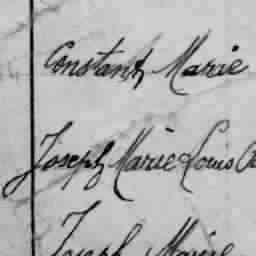 Constant Marie
Joseph Marie Louis
Joseph Marie